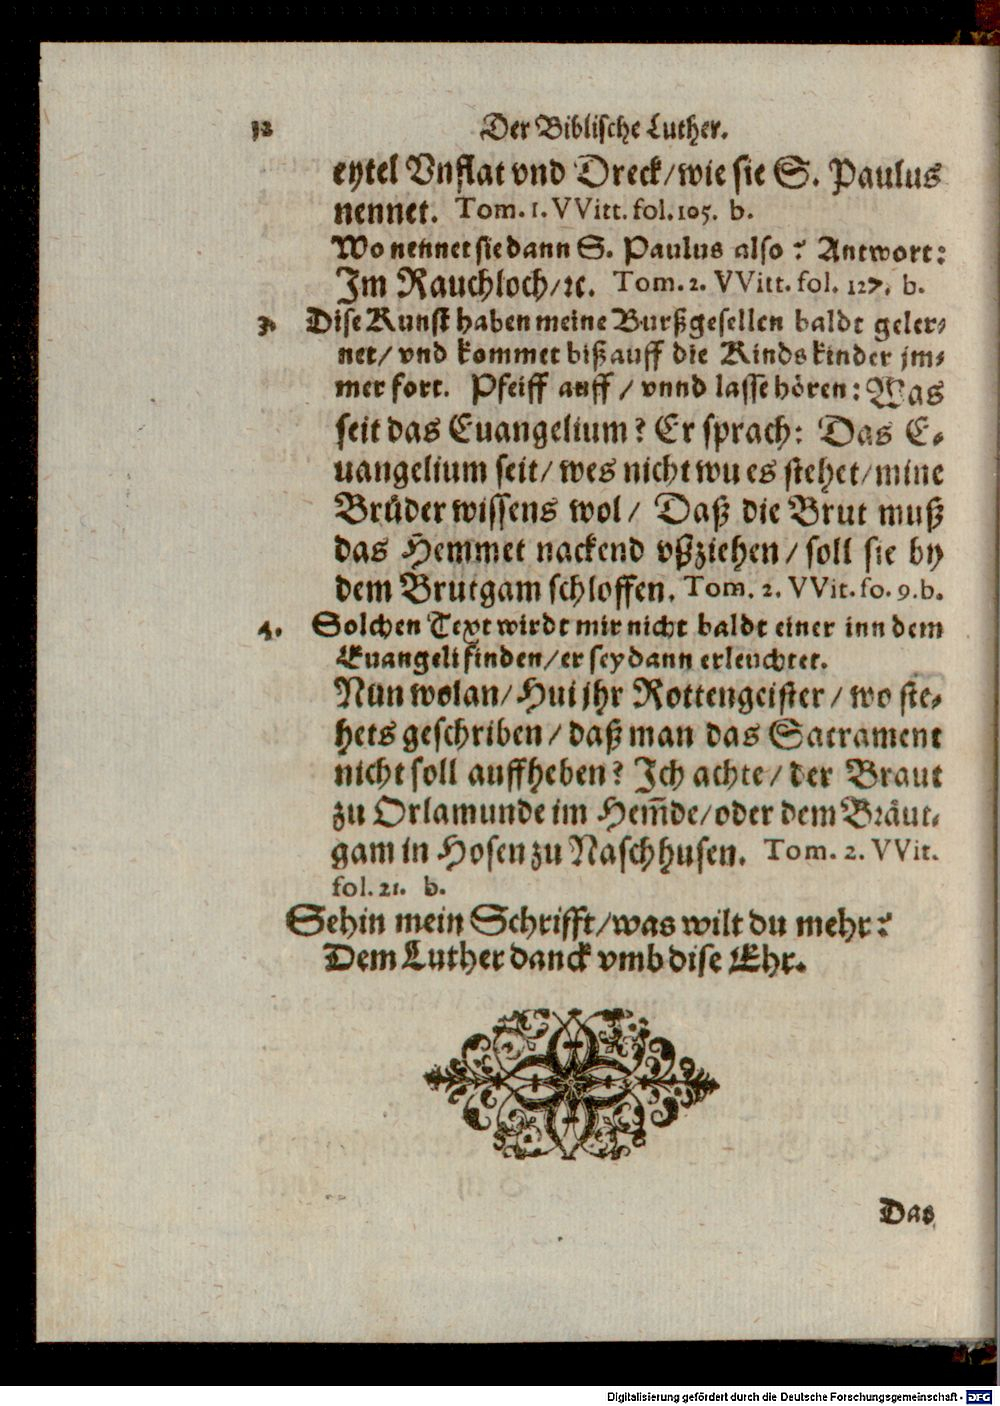 12 Der Biblische Luther.
eytel Vnflat vnd Dreck/wie sie S. Paulus
nennet. Tom. 1. VVitt. fol. 105. b.
Wo nennet sie dann S. Paulus also? Antwort:
Im Rauchloch/ꝛc. Tom. 2. VVitt. fol. 127. b.
3. Dise Kunst haben meine Burßgesellen baldt geler-
net/ vnd kommet biß auff die Kindskinder jm-
mer fort. Pfeiff auff / vnnd lasse hören: Was
seit das Euangelium? Er sprach: Das E-
uangelium seit/ wes nicht wu es stehet/ mine
Brůder wissens wol/ Daß die Brut muß
das Hemmet nackend vßziehen/ soll sie by
dem Brutgam schloffen. Tom. 2. VVit. fo. 9. b.
4. Solchen Text wirdt mir nicht baldt einer inn dem
Euangeli finden/ er sey dann erleuchtet.
Nun wolan/ Hui jhr Rottengeister/ wo ste-
hets geschriben/ daß man das Sacrament
nicht soll auffheben? Ich achte/ der Braut
zu Orlamunde im Hem̃de/ oder dem Bräut-
gam in Hosen zu Naschhusen. Tom. 2. VVit.
fol. 21. b.
Sehin mein Schrifft/was wilt du mehr?
Dem Luther danck vmb dise Ehr.
Das
Digitalisierung gefördert durch die Deutsche Forschungsgemeinschaft - DFG